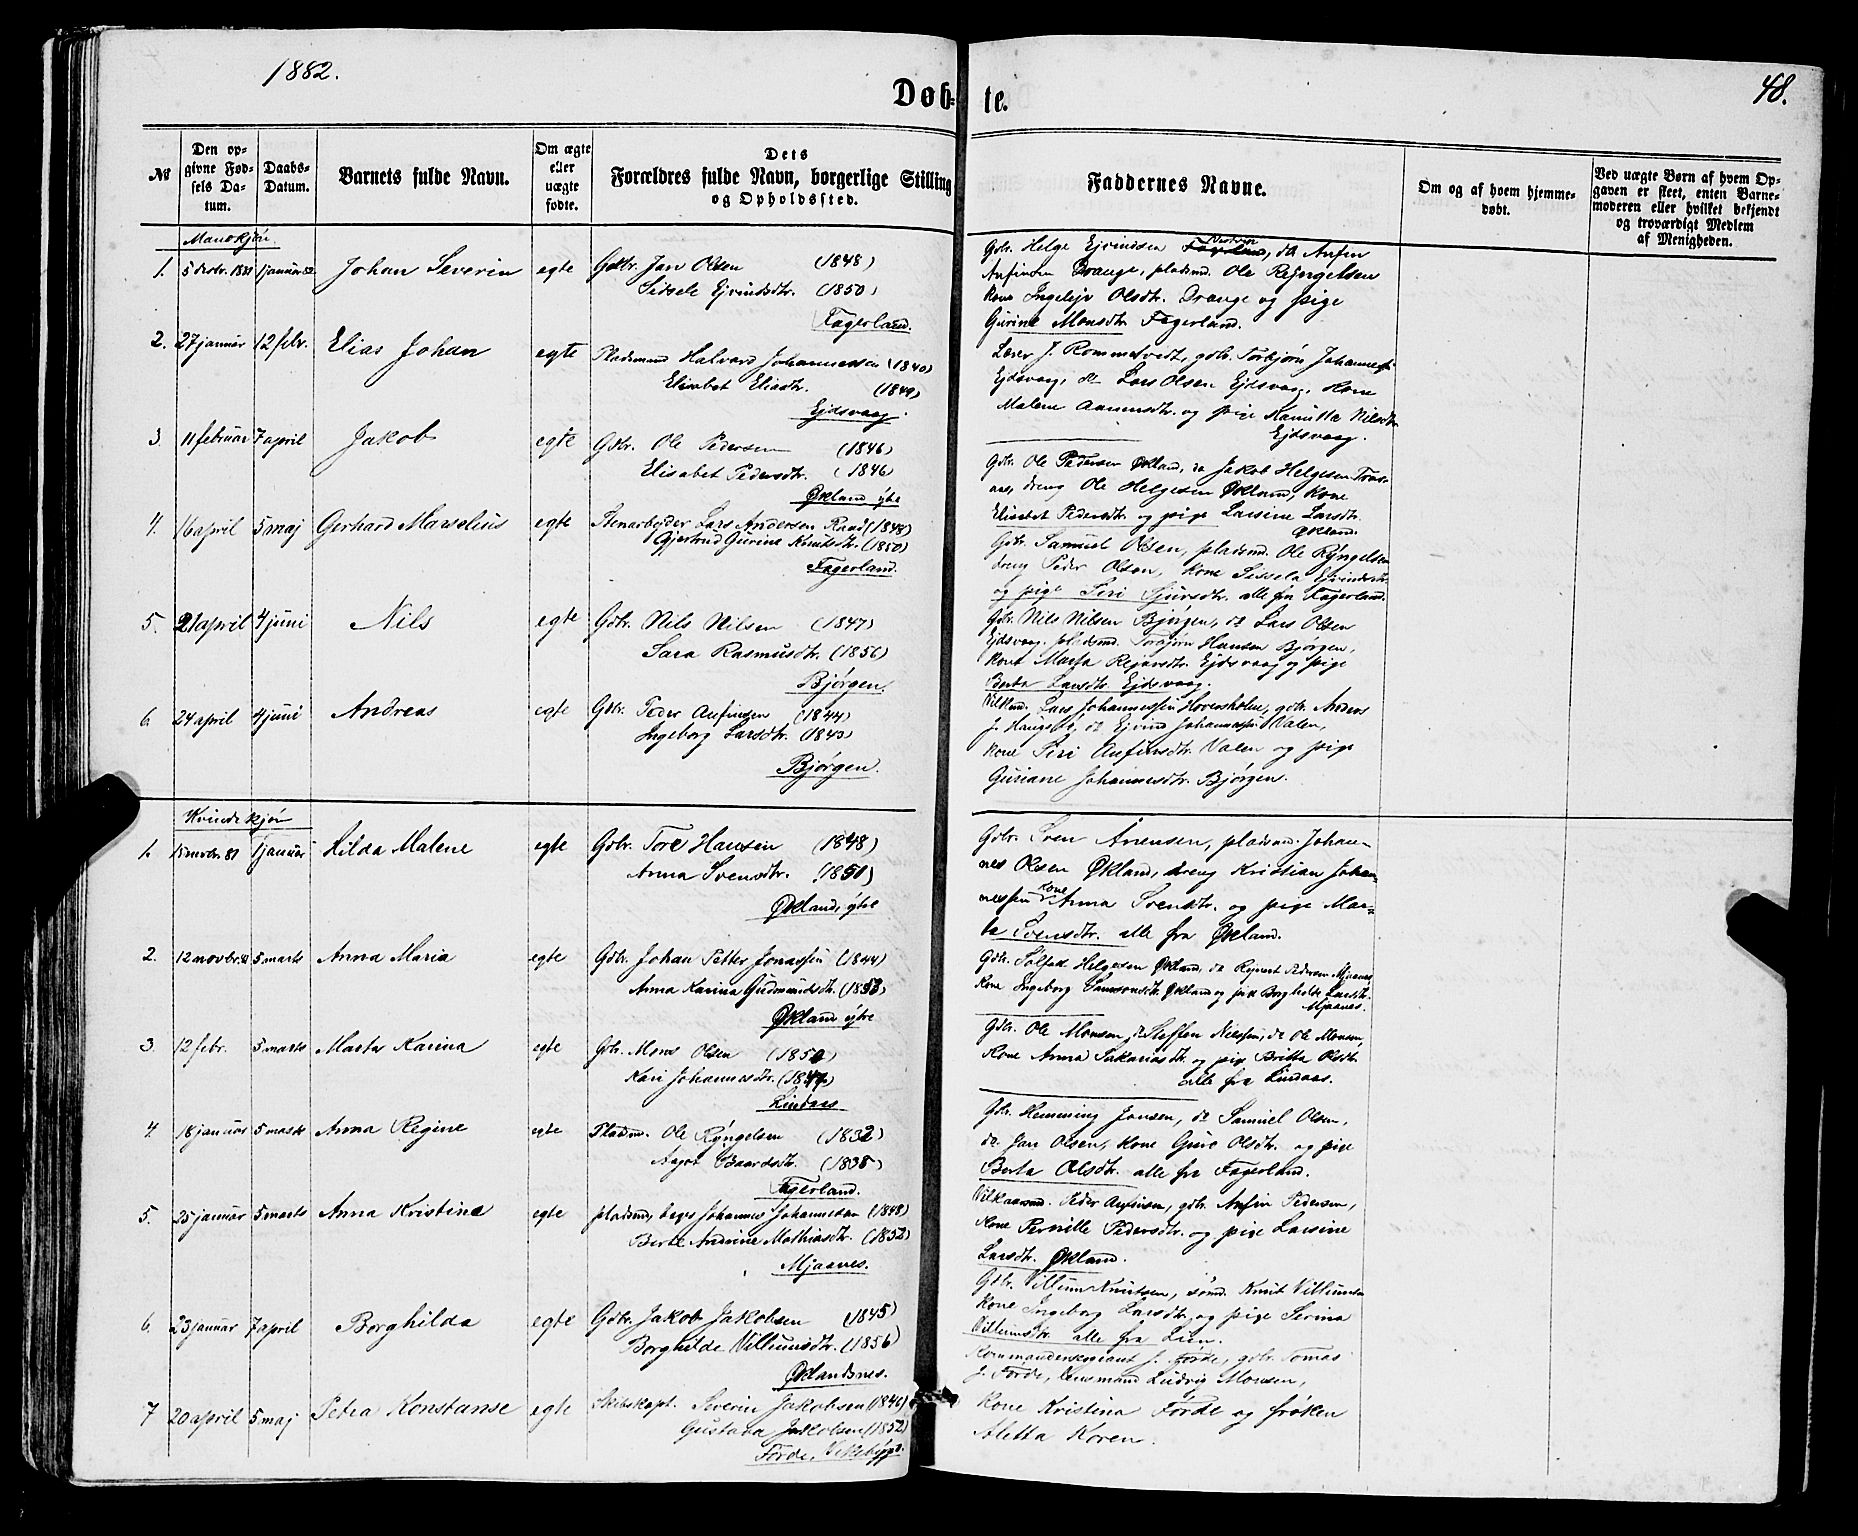 1882.
48.
Døbte.
№
Den opgivne Fødsels Datum.
Daabs-Datum.
Barnets fulde Navn.
Om ægte eller uægte fødte.
Dets Forældres fulde Navn, borgerlige Stilling og Opholdssted.
Faddernes Navne.
Om og af hvem hjemmedøbt.
Ved uægte Børn af hvem Opgaven er skeet, enten Barnemoderen eller hvilket bekjendt og troværdigt Medlem af Menigheden.
Mandkjøn
1. 5 decbr. 1881 1 januar 82 Johan Severin egte Gdbr. Jan Olsen (1848)
Sidsele Ejvindsdtr. (1850)
Fagerland.
Gdbr. Helge Ejvindsen Fagerland, do Anfin
Anfinsen Drange, pladsmd. Ole Ryngelsen
Kone Ingelejv Olsdtr. Drange og pige
Gurine Monsdtr. Fagerland.
2. 27 januar 12 febr. Elias Johan egte Pladsmand Halvard Johannessen (1840)
Elisabet Eliasdtr. (1849)
Ejdsvaag.
Lærer J. Rommetvedt, gdbr. Torbjørn Johannesn.
Ejdsvaag, do Lars Olsen Ejdsvaag, Kone
Malene Aamundsdtr. og pige Kanutta Nilsdtr.
Ejdsvaag.
3. 11 februar 7 april Jakob egte Gdbr. Ole Pedersen (1846)
Elisabet Pedersdtr. (1846)
Økland ytre
Gdbr. Ole Pedersen Økland, do Jakob Helgesen
dreng Ole Helgesen Økland, Kone
Elisabet Pedersdtr. og pige Larsine Larsdtr.
Økland.
4. 16 april 5 maj Gerhard Marselius egte Stenarbejder Lars Andersen Raad (1848)
Gjertrud Gurine Knutsdtr. (1850)
Fagerland.
Gdbr. Samuel Olsen, pladsmd. Ole Ryngelsen
dreng Peder Olsen, Kone Sissela Ejvindsdtr.
og pige Siri Sjursdtr. alle fra Fagerland.
5. 21 april 4 juni Nils egte Gdbr. Nils Nilsen (1847)
Sara Rasmusdtr. (1856)
Bjørgen.
Gdbr. Nils Nilsen Bjørgen, do Lars Olsen
Ejdsvaag, pladsmd. Torbjørn Hansen Bjørgen,
Kone Marta Rejarsdtr. Ejdsvaag og pige
Berta Larsdtr. Ejdsvaag.
6. 24 april 4 juni Andreas egte Gdbr. Peder Anfinsen (1844)
Ingeborg Larsdtr. (1843)
Bjørgen.
Lars Johannessen Hoversholm, gdbr. Anders
J. Haugesø, do Ejvind Johannessen Valen,
Kone Siri Anfinsdtr. Valen og pige
Guriane Johannesdtr. Bjørgen.
Kvindekjøn
1. 15 novbr. 81 1 januar Hilda Malene egte Gdbr. Tore Hansen (1848)
Anna Svensdtr. (1851)
Økland, ytre
Gdbr. Sven Anensen, pladsmd. Johan-
nes Olsen Økland, dreng Kristian Johan-
nessen Kone Anna Svensdtr. og pige Mar-
ta Svensdtr. alle fra Økland.
2. 12 novbr. 81 5 marts Anna Maria egte Gdbr. Johan Petter Jonassen (1844)
Anna Karina Gudmundsdtr. (1853)
Økland ytre
Gdbr. Salfest Helgesen Økland, do Rejnert Pedersen Mjaanes
Kone Ingeborg Samsonsdtr. Økland og pige Borghilde Larsdtr.
Mjaanes.
3. 12 febr. 5 marts Marta Karina egte Gdbr. Mons Olsen (1850)
Kari Johannesdtr. (1847)
Lindaas
Gdbr. Ole Monsen, do Steffen Nilssen, do Ole Monsen,
Kone Anna Sakariasdtr. og pige Britta Olsdtr.
alle fra Lindaas.
4. 18 januar 5 marts Anna Regine egte Pladsm. Ole Ryngelsen (1832)
Aagot Baardsdtr. (1838)
Fagerland.
Gdbr. Hemming Jansen, do Samuel Olsen,
do Jan Olsen, Kone Guro Olsdtr. og pige
Berta Olsdtr. alle fra Fagerland.
5. 25 januar 5 marts Anna Kristina egte pladsmd. Johannes Johannessen (1848)
Berte Andrine Mathiasdtr. (1852)
Mjaanes.
Vilkaarsmd. Peder Anfinsen, gdbr. Anfin Pedersen,
Kone Pernille Pedersdtr. og pige Larsine
Larsdtr. Økland.
6. 23 januar 7 april Borghilda egte Gdbr. Jakob Jakobsen (1845)
Borghilde Villumsdtr. (1856)
Øklandsnes.
Gdbr. Villum Knutsen, sømd. Knut Villumsen
Kone Ingeborg Larsdtr. og pige Serina
Villumsdtr. alle fra Lien.
7 20 april 5 maj Petra Konstanse egte Skibskapt. Severin Jakobsen (1846)
Gustava Jakobsen (1852)
Førde, Vikebygd.
Kommandersergiant J. Førde, gdbr. Tomas
J. Førde, Lensmand Ludvig Monsen,
Kone Kristina Førde og frøken
Aletta Koren.